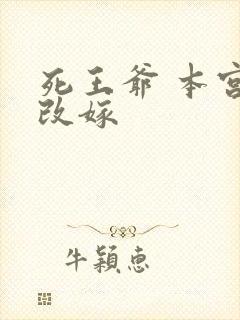 死王爷 本宫
改嫁
牛颖惠